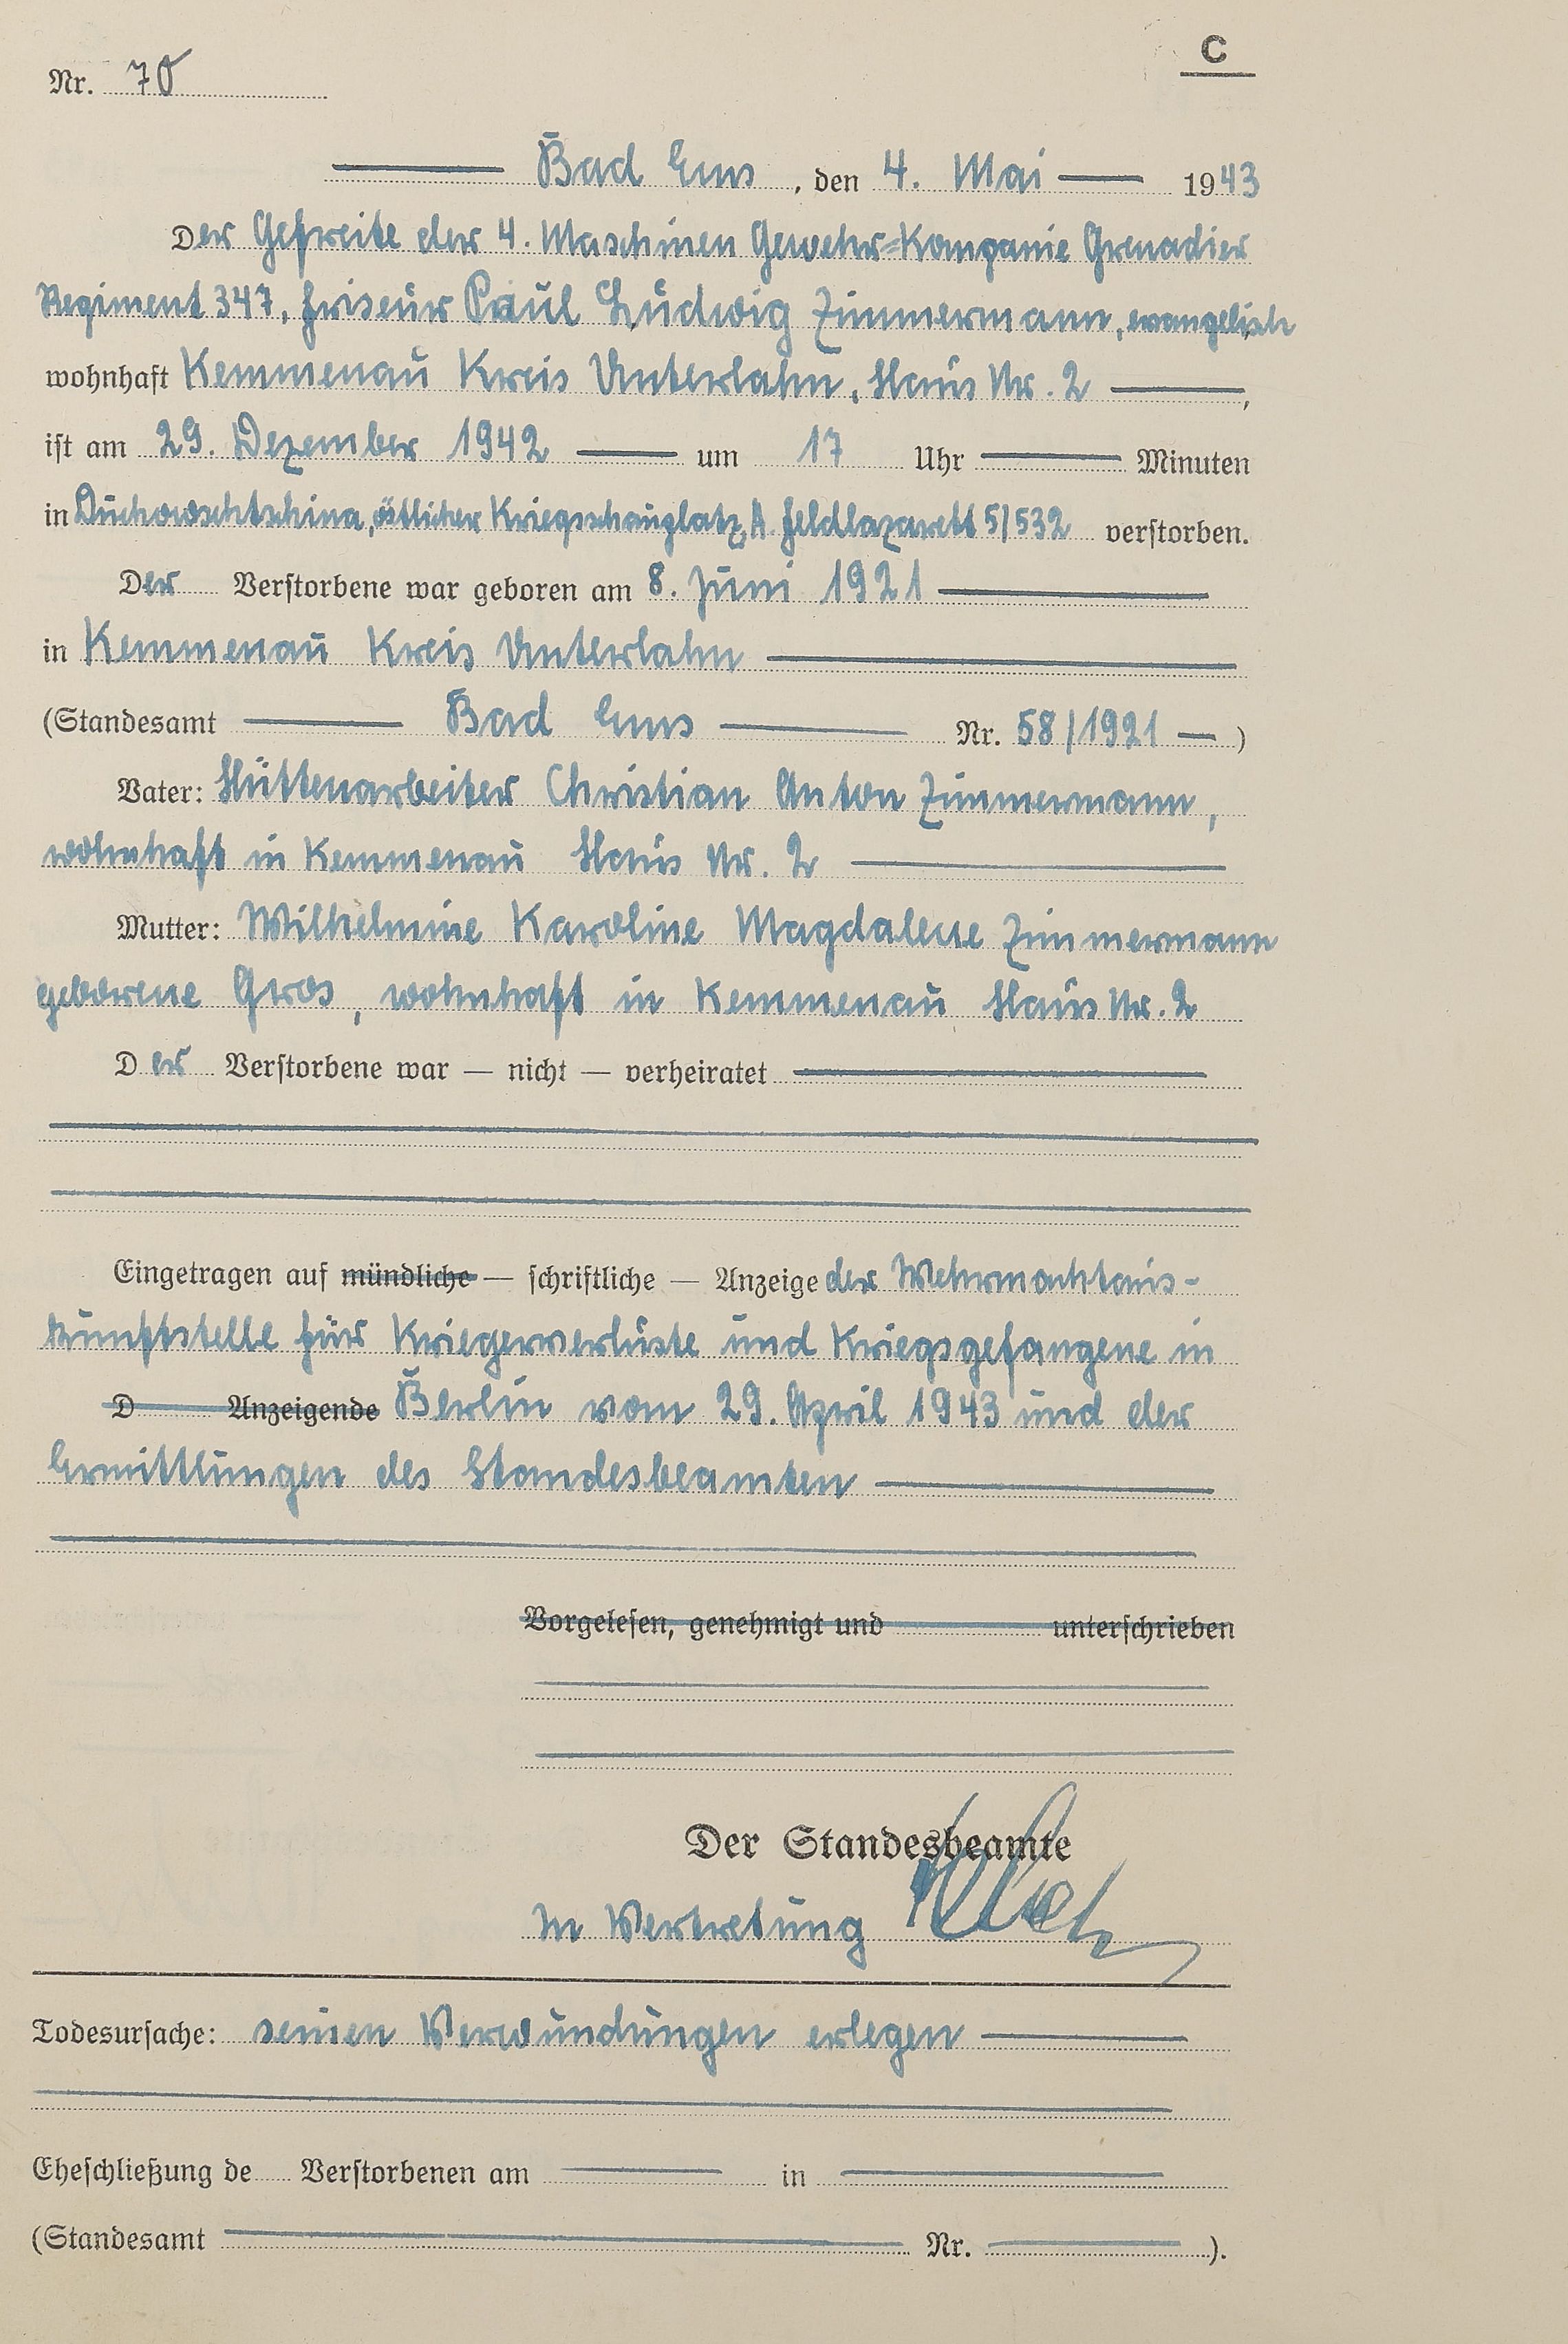 C
Nr. 70
Bad Ems, den 4. Mai 1943
Der Gefreite der 4. Maschinen Gewehr=Kompanie Grenadier
Regiment 347, Friseur Paul Ludwig Zimmermann, evangelisch
wohnhaft Kemmenau Kreis Unterlahn, Haus Nr. 2,
ist am 29. Dezember 1942 um 17 Uhr Minuten
in Duchowschtschina, östlicher Kriegsschauplatz, Feldlazarett 5/532 verstorben.
Der Verstorbene war geboren am 8. Juni 1921
in Kemmenau Kreis Unterlahn
(Standesamt Bad Ems Nr. 58/1921)
Vater: Hüttenarbeiter Christian Anton Zimmermann,
wohnhaft in Kemmenau Haus Nr. 2
Mutter: Wilhelmine Karoline Magdalene Zimmermann
geborene Gros, wohnhaft in Kemmenau Haus Nr. 2
Der Verstorbene war — nicht — verheiratet
Eingetragen auf mündliche — schriftliche — Anzeige der Wehrmachtaus-
kunftstelle für Kriegerverluste und Kriegsgefangene in
D Anzeigende Berlin vom 29. April 1943 und der
Ermittlungen des Standesbeamten
Vorgelesen, genehmigt und unterschrieben
Der Standesbeamte
In Vertretung
Todesursache: seinen Verwundungen erlegen
Eheschließung de Verstorbenen am in
(Standesamt Nr. ).